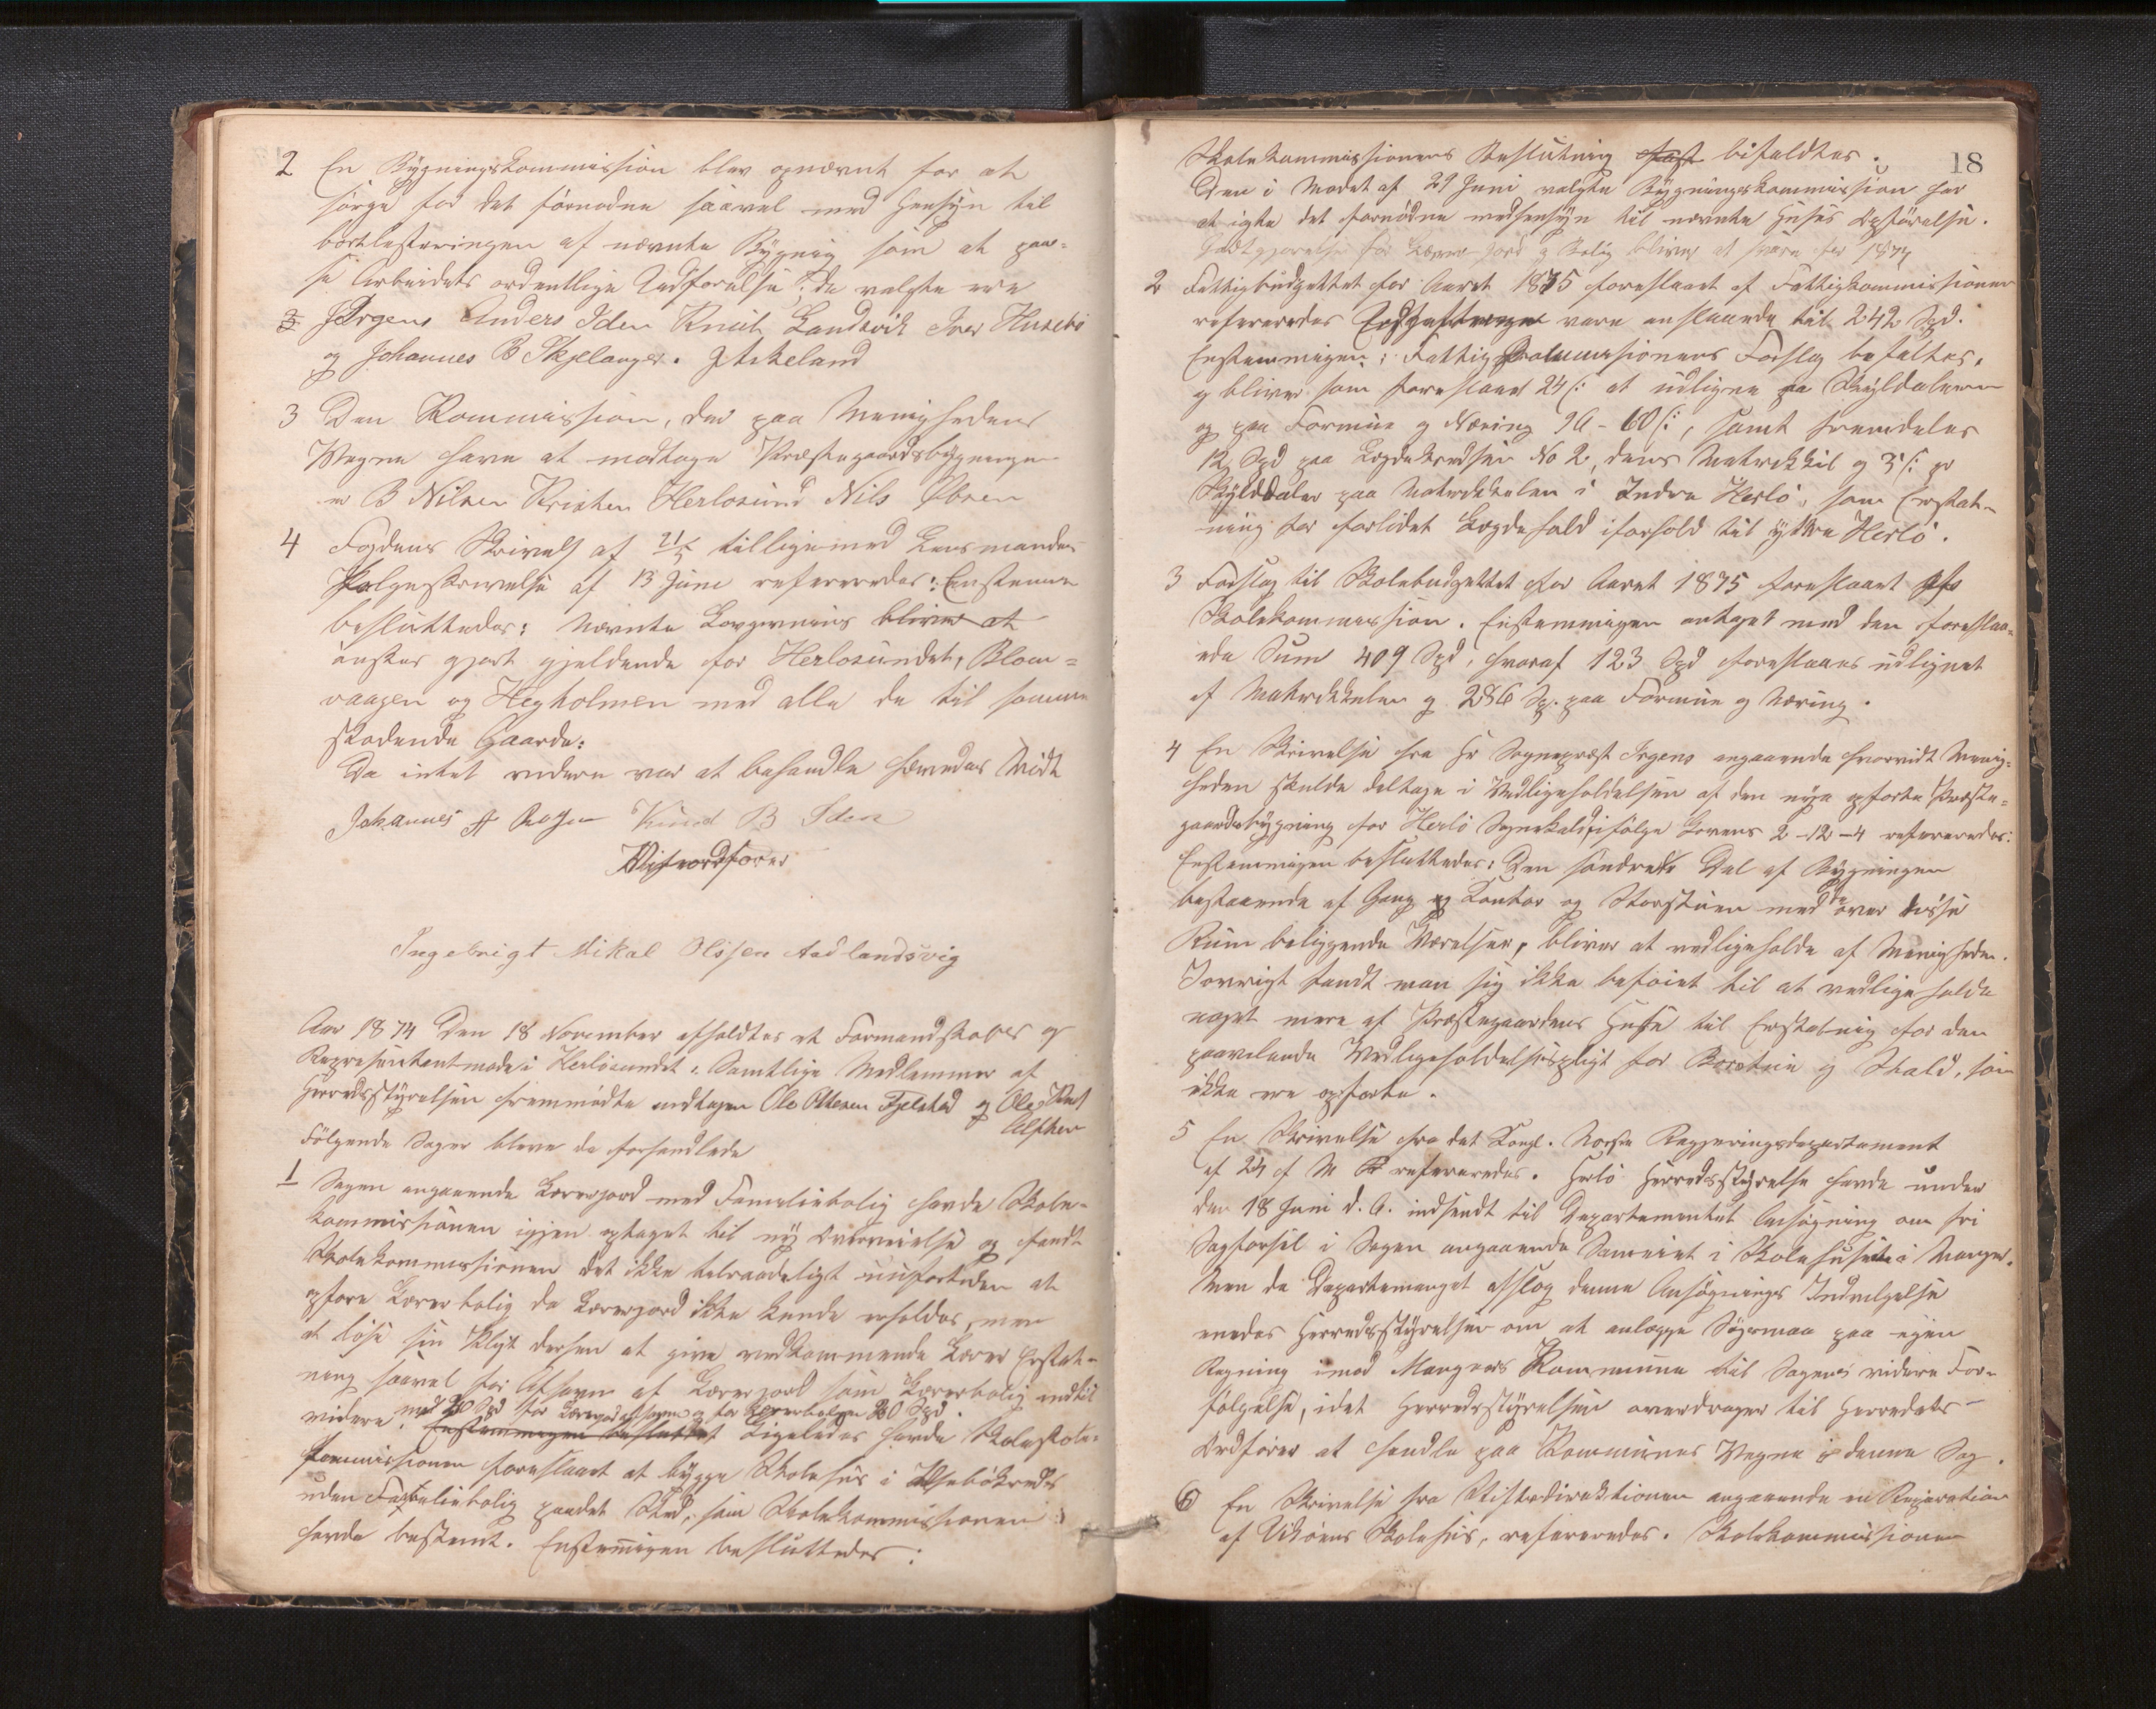 2 En Bygningskommission blev opnævnt for at
sørge for det fornødne saavel med Hensyn til
bortlisteringen af nævnte Bygnig som at paa-
se Arbeidets ordentlige Udførelse; de valgte ere
Irgens Anders Iden Knut Landsvik Iver Husebø
og Johannes B Skjelanger. J Askeland
3 Den Kommission, der paa Menighedens
Vegne have at modtage Præstegaardsbygningen
er B Nilsen Kristen Herløsund Nils Ibsen
4 Fogdens Skrivels af 21/5 tilligemed Lensmandens
Følgeskrivelse af 13 Juni refereredes: Enstemmi
besluttedes: Nævnte Lovgivning bliver at
ønskes gjort gjeldende for Herløsundet, Blom-
vaagen og Hegholmen med alle de til samme
stødende Gaarde:
Da intet videre var at behandle hævedes Mødt
Johannes A Knud B Iden
Viseordfører
Ingebrigt Mikal Olssen Aadlandsvig
Aar 1874 Den 18 November afholdtes et Formandskabs og
Repræsentantmøde i Herløsundet. Samtlige Medlemmer af
Herredsstyrelsen fremmødte undtagen Ole Ottesen Fjelstad og Ole
Følgende Sager bleve da forhandlede
1 Sagen angaaende Lærerjord med Familiebolig havde Skole-
kommissionen igjen optaget til ny Overveielse og fandt
Skolekommissionen det ikke tilraadeligt nu at
opføre Lærerbolig da Lærerjord ikke kunde erholdes, men
at løse sin Pligt derhen at give vedkommende Lærer Erstat-
ning saavel for Afsavn af Lærerjord som Lærerbolig indtil
med 20 Spd for Lærerjord og for Lærerboligen 20 Spd
videre. Enstemmigen besluttet Ligeledes havde Skole
kommissionen foreslaaet at bygge Skolehus i Husebøkreds
uden Familiebolig paadet Sted, som Skolekommissionen
havde bestemt. Enstemmigen besluttedes:
18
Skolekommissionens Beslutning bifaldtes.
Den i Mødet af 29 Juni valgte Bygningskommission har
at igte det fornødne medhensyn til nævnte Huses Opførelse.
Godtgjørelse for Lærer Jord og Bolig bliver at svare for 1874
2 Fattigbudgettet for Aaret 1875 foreslaaet af Fattigkommissionen
refereredes vare anslaaede til 242 Spd.
Enstemmigen: Fattigkommissionens Forslag bifaltes,
og bliver som foreslaaet 24 ß at udligne paa Skylddaleren
og paa Formue og Næring 96 - 60 ß, samt fremdeles
12 Spd paa Lægdekredsen No 2, dens Matrikkel og 3 ß pr
Skylddaler paa Matrikkelen i Indre Herlø, som Erstat-
ning for forlidet Lægdehold iforhold til ytre Herlø.
3 Forslag til Skolebudgettet for Aaret 1875 foreslaaet af
Skolekommission. Enstemmigen antaget med den foreslaa-
ede Sum 409 Spd, hvoraf 123 Spd foreslaaes udlignet
af Matrikkelen og 286 Sp. paa Formue og Næring.
4 En Skrivelse fra Hr Sogneprest Irgens angaaende hvorvidt Menig-
heden skulde deltage i Vedligeholdelsen af den nye opførte Præste-
gaardsbygning for Herlø Sognekald ifølge Lovens 2-12-4 refereredes:
Enstemmigen besluttedes: Den søndre Del af Bygningen
bestaaende af Gang og Kontor og Storstuen med de over disse
Rum beliggende Værelser, bliver at vedligeholde af Menigheden.
Iøvrigt fandt man sig ikke beføiet til at vedlige holde
noget mere af Præstegaardens Huse til Erstatnig for den
paavilende Vedligeholdelsespligt for Borestue og Stald, som
ikke ere opførte.
5 En Skrivelse fra det Kongl. Norske Regjeringsdepartement
af 24 f M refereredes. Herlø Herredsstyrelse havde under
den 18 Juni d. A. indsendt til Departementet Ansøgning om fri
Sagførsel i Sagen angaaende Sameiet i Skolehuset i Manger.
Men da Departemanget afslog denne Ansøgnings Indvilgelse
enedes Herredsstyrelsen om at anlægge Søgsmaa paa egen
Regning imod Mangers Kommune til Sagens videre For-
følgelse, idet Herredsstyrelsen overdrager til Herredets
Ordfører at handle paa Kommunens Vegne i denne Sag.
6 En Skrivelse fra Stiftsdirektionen angaaende en Reparation
af Uthuus Skolehus, refereredes. Skolekommissionen